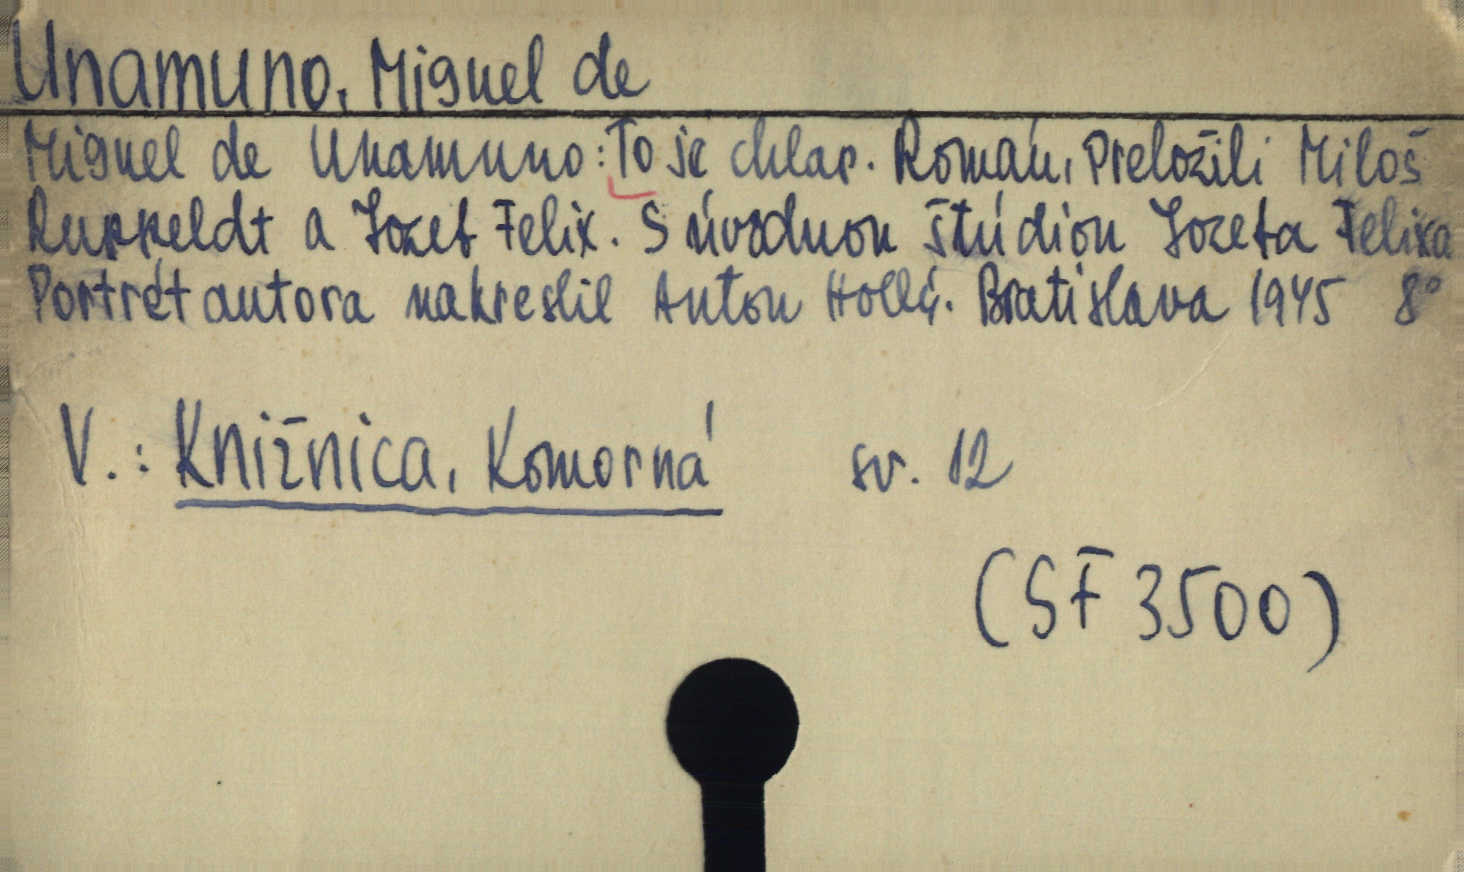 Unamuno, Miguel de
Miguel de Unamuno: To je chlap. Román. Preložili Miloš
Ruppeldt a Jozef Felix. S úvodnou štúdiou Jozefa Felixa
Portrét autora nakreslil Anton Hollý. Bratislava 1945 8°
V.: Knižnica, Komorná sv. 12
(SF 3500)